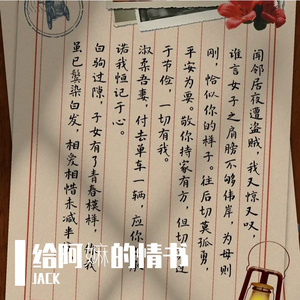 闻邻居夜遭盗贼，我又惊又叹，
谁言女子之肩膀不够伟岸，为母则
刚，恰似你的样子。往后切莫孤勇，
平安为要。敬你持家有方，但切过
于节俭，一切有我。
淑柔吾妻，付去单车一辆，应你
诺我恒记于心。
白驹过隙，子女有了青春模样，你我
虽已鬓染白发，相爱相惜未减半
给阿嫲的情书
JACK